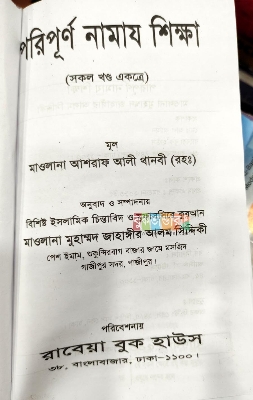 পরিপূর্ণ নামায শিক্ষা
(সকল খণ্ড একত্রে)
মূল
মাওলানা আশরাফ আলী থানবী (রহঃ)
অনুবাদ ও সম্পাদনায়
বিশিষ্ট ইসলামিক চিন্তাবিদ ও কুরআন
মাওলানা মুহাম্মদ জাহাঙ্গীর আলম সিদ্দিকী
পেশ ইমাম, বাজার জামে মসজিদ
গাজীপুর সদর, গাজীপুর।
পরিবেশনায়
রাবেয়া বুক হাউস
৩৮, বাংলাবাজার, ঢাকা-১১০০।